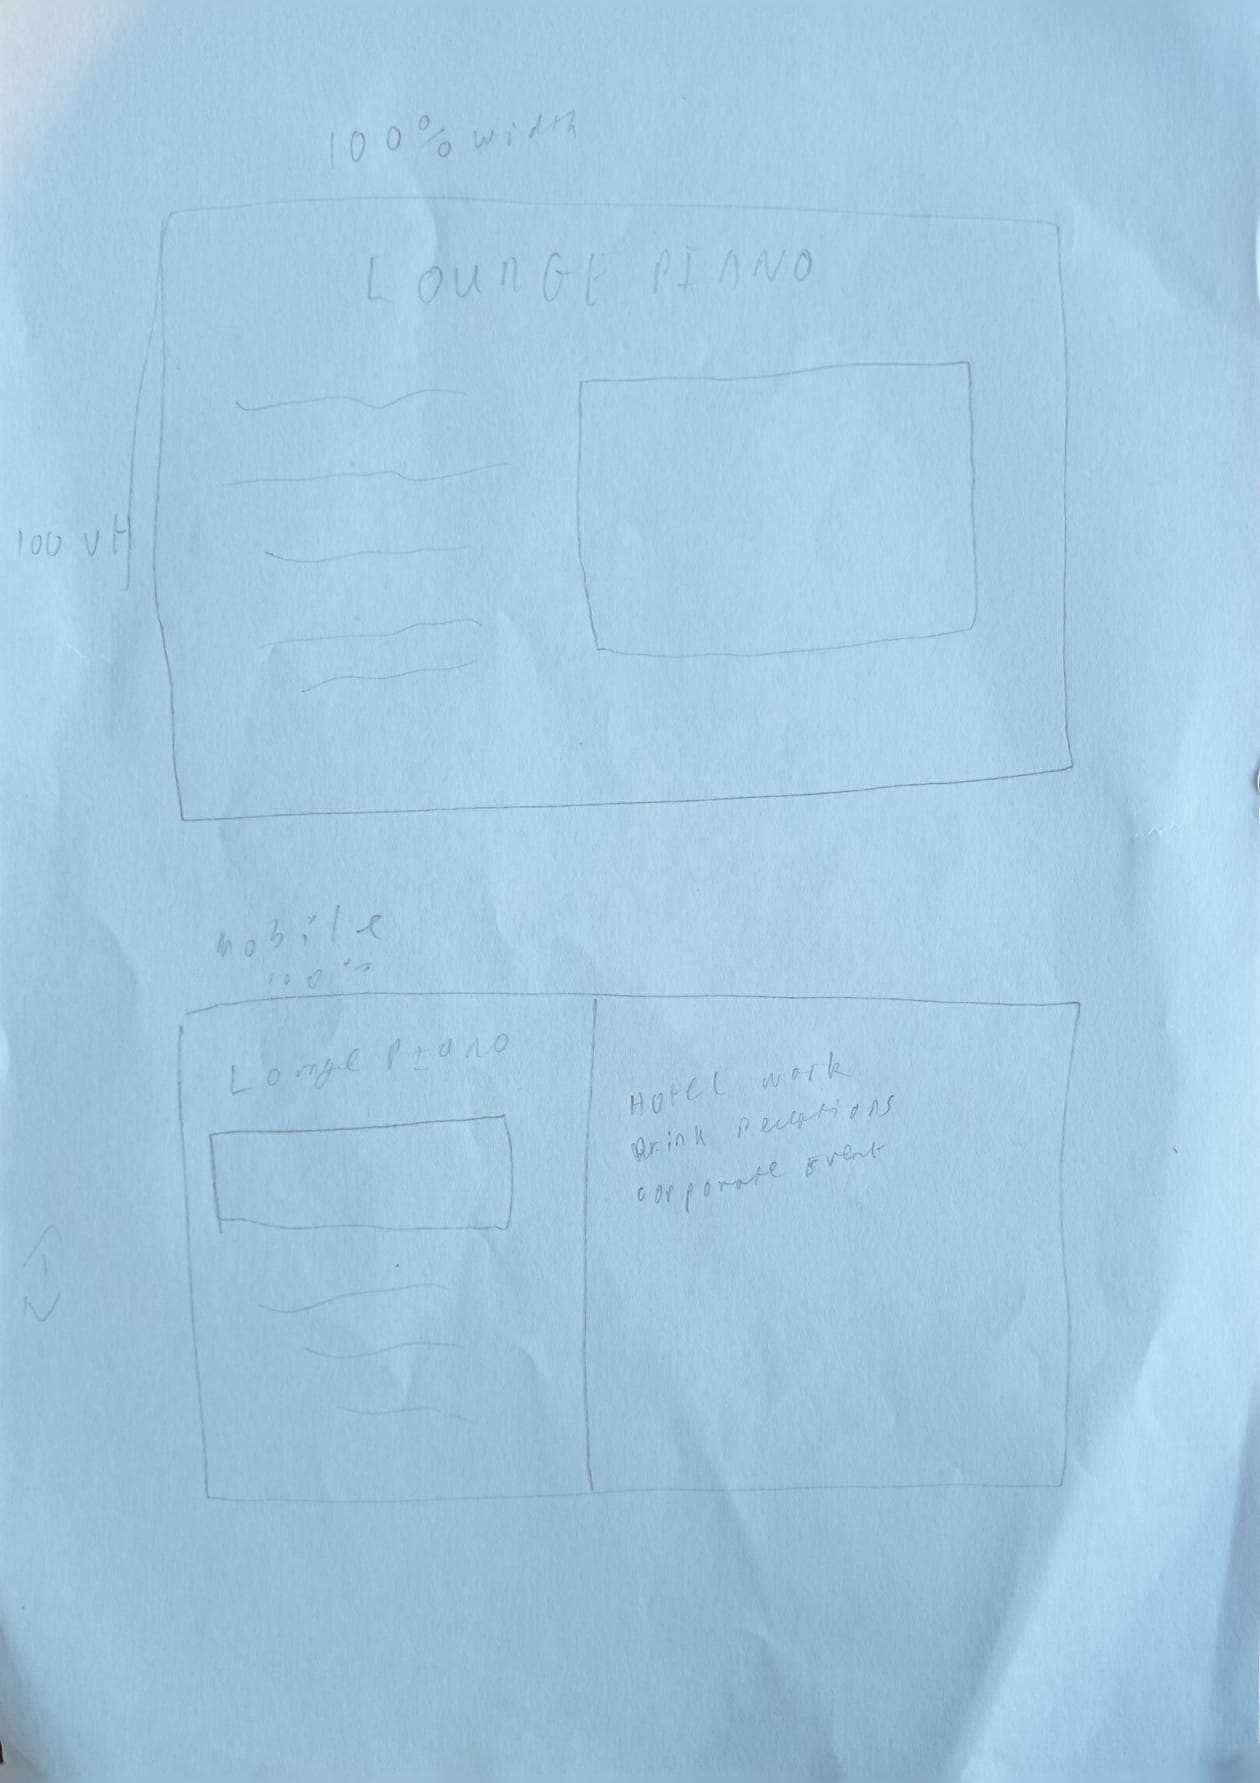 100% width
LOUNGE PIANO
100 VH
mobile
100%
Lounge PIANO
Hotel work
Drink Receptions
corporate Event